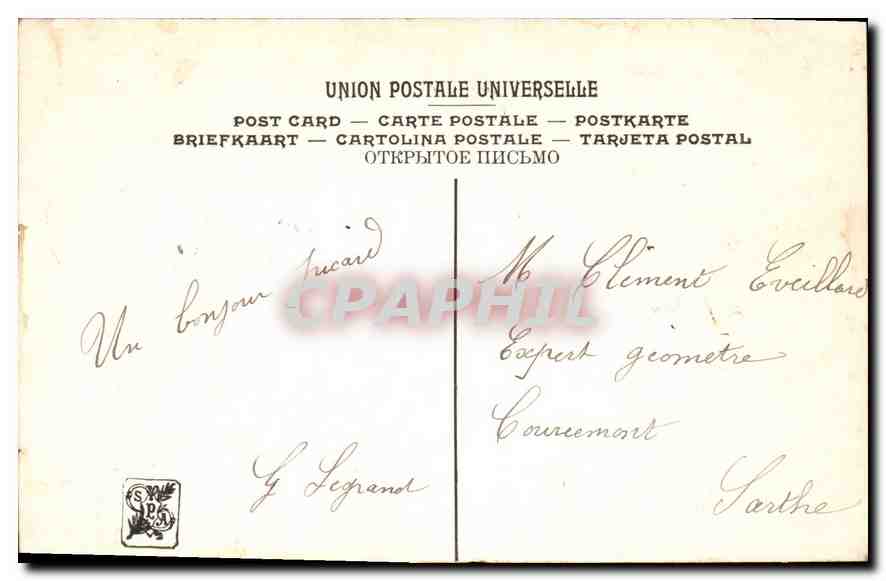 UNION POSTALE UNIVERSELLE
POST CARD — CARTE POSTALE — POSTKARTE
BRIEFKAART — CARTOLINA POSTALE — TARJETA POSTAL
ОТКРЫТОЕ ПИСЬМО
Un bonjour picard
G Legrand
M Clément Eveillard
Expert géomètre
Courcemont
Sarthe
CPAPHIL
SPA